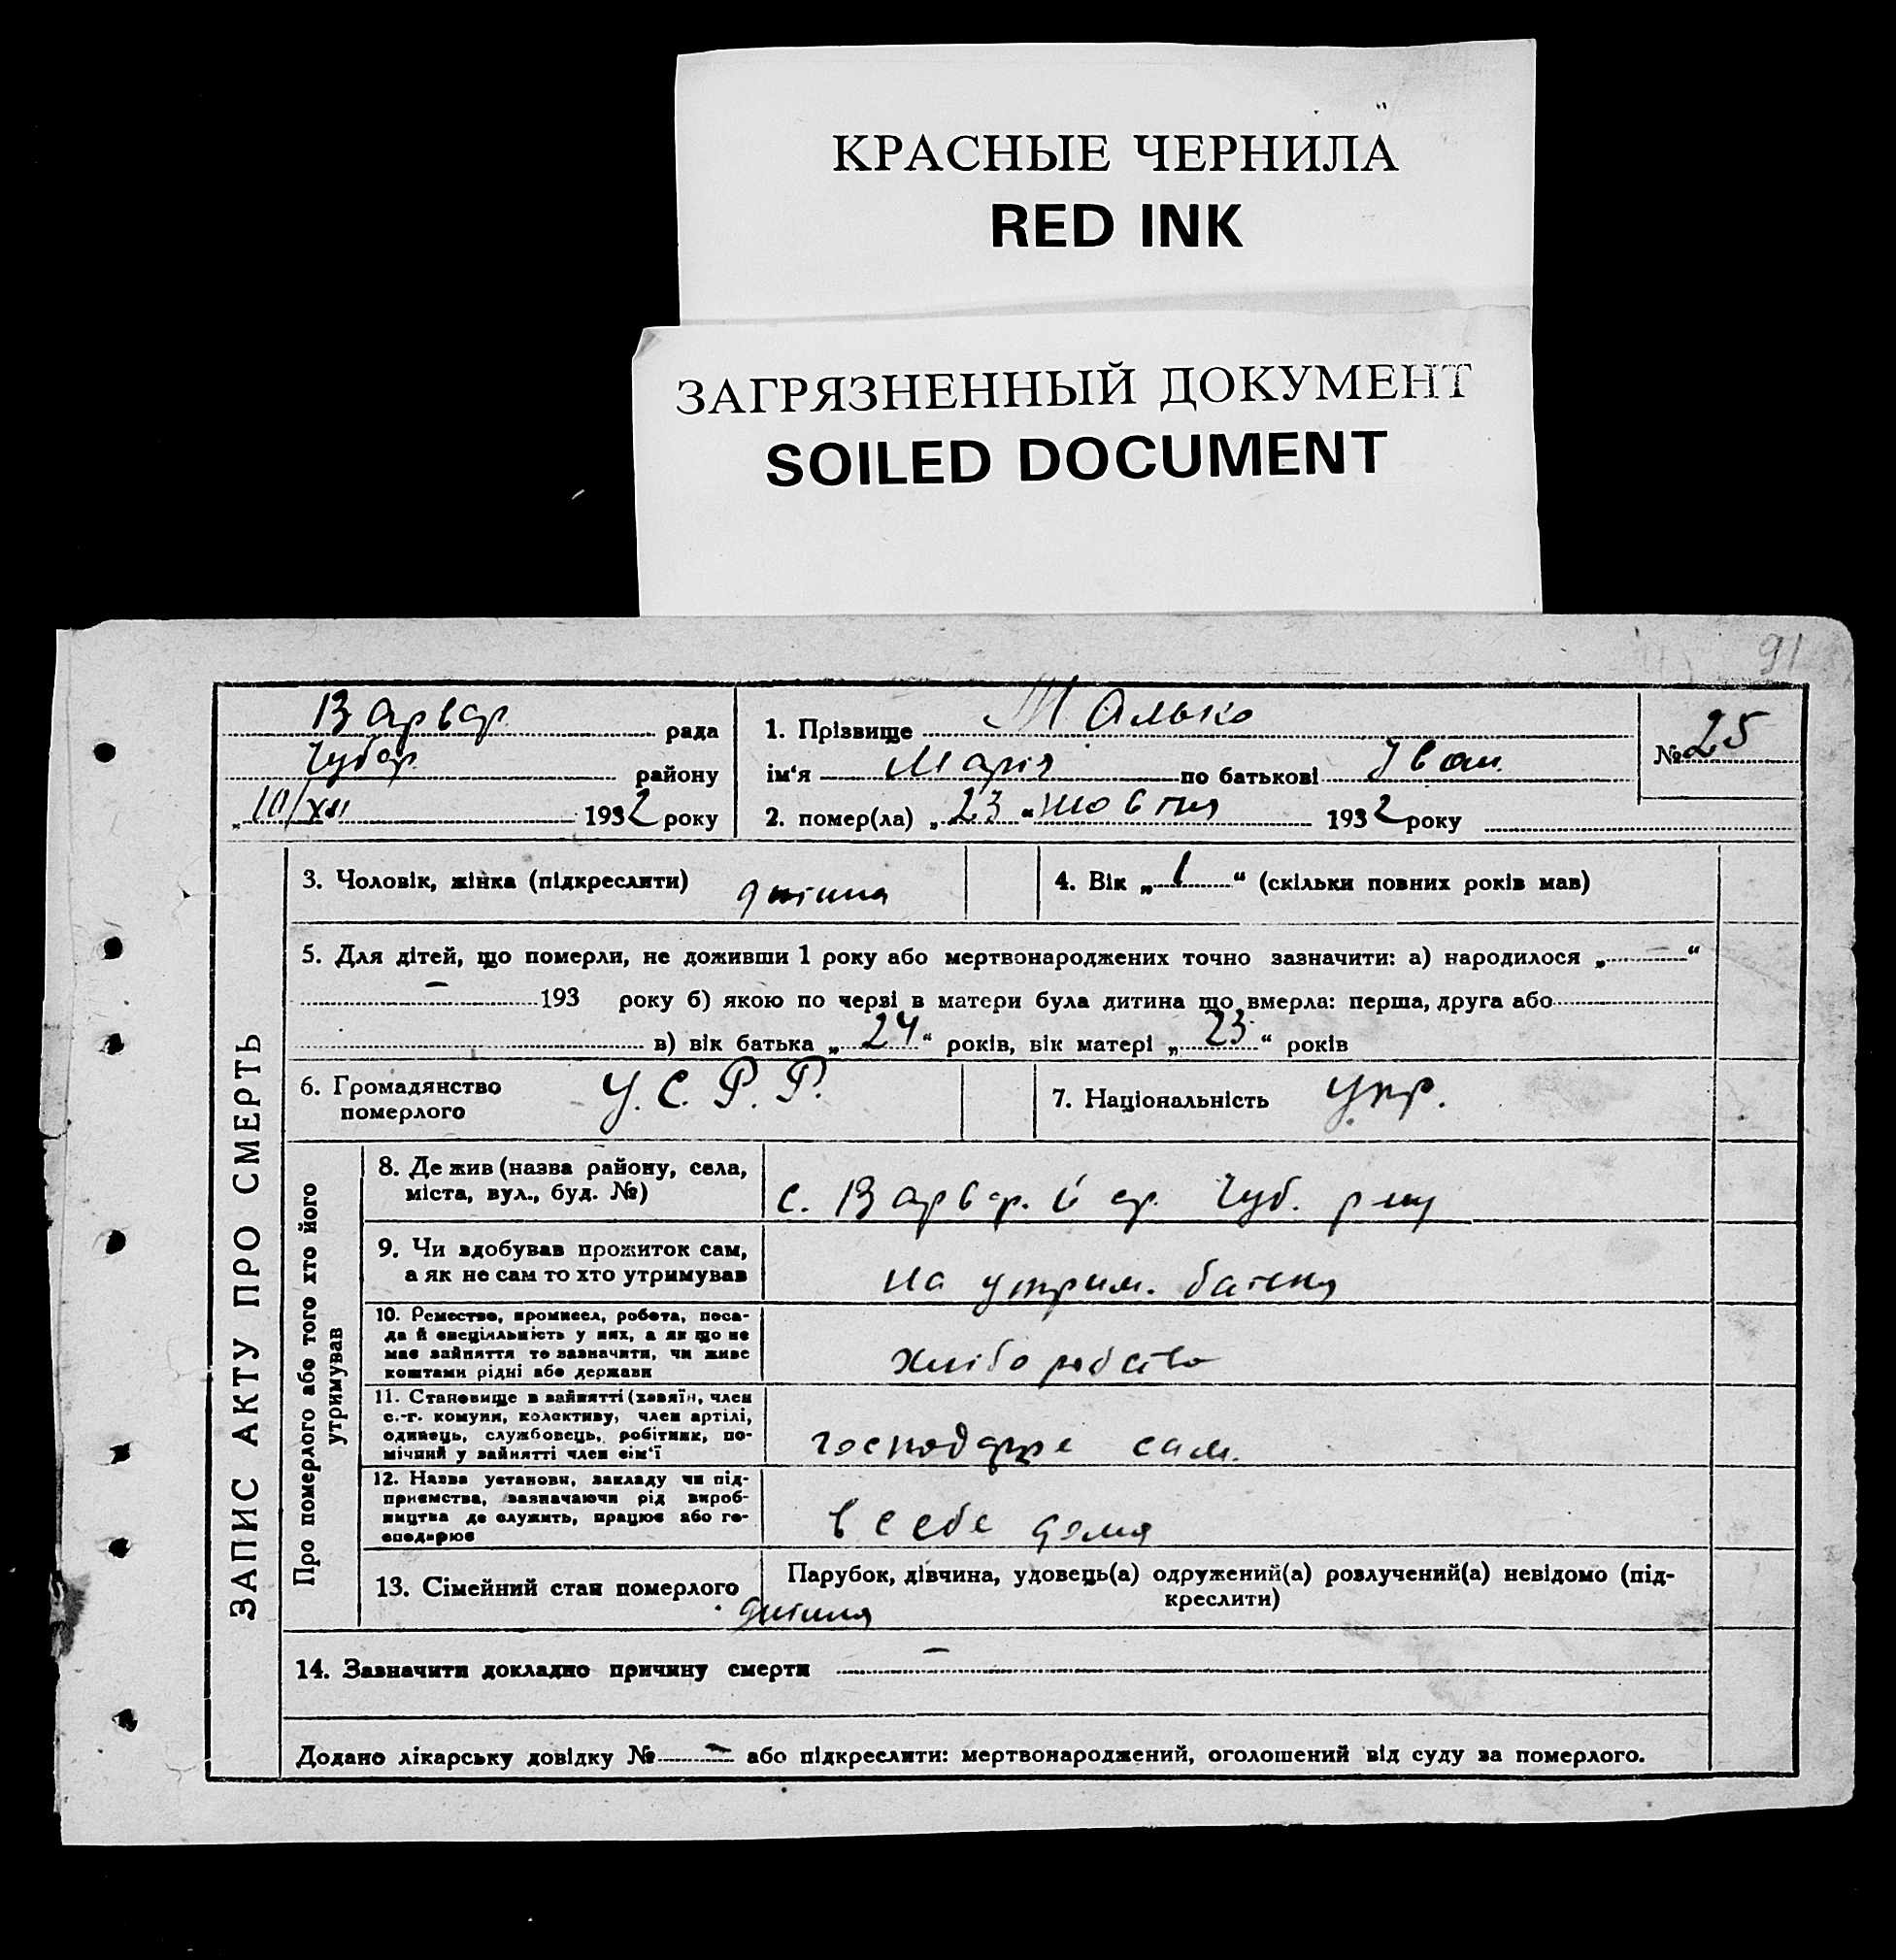 КРАСНЫЕ ЧЕРНИЛА
RED INK
ЗАГРЯЗНЕННЫЙ ДОКУМЕНТ
SOILED DOCUMENT
91
Варвар. рада
Чубар. району
„10/XII 1932 року
1. Прізвище Малько
ім‘я Марія по батькові Іван.
2. помер(ла) „23“ жовтня 1932 року
№ 25
ЗАПИС АКТУ ПРО СМЕРТЬ
3. Чоловік, жінка (підкреслити) дитина
4. Вік „1“ (скільки повних років мав)
5. Для дітей, що померли, не доживши 1 року або мертвонароджених точно зазначити: а) народилося „—“
— 193 року б) якою по черзі в матери була дитина що вмерла: перша, друга або
в) вік батька „24“ років, вік матері „23“ років
6. Громадянство
померлого У.С.Р.Р.
7. Національність Укр.
Про померлого або того хто його
утримував
8. Де жив (назва району, села,
міста, вул., буд. №)
с. Варвар. Чуб. р-ну
9. Чи здобував прожиток сам,
а як не сам то хто утримував
на утрим. батька
10. Ремество, промисел, робота, поса-
да й спеціяльність у них, а як що не
має зайняття то зазначити, чи живе
коштами рідні або держави
хліборобство
11. Становище в зайнятті (хазяїн, член
с.-г. комуни, колективу, член артілі,
одинець, службовець, робітник, по-
мічний у зайнятті член сім‘ї
господарює сам.
12. Назва установи, закладу чи під-
приємства, зазначаючи рід вироб-
ництва де служить, працює або го-
сподарює
в себе дома
13. Сімейний стан померлого
дитина
Парубок, дівчина, удовець(а) одружений(а) розлучений(а) невідомо (під-
креслити)
14. Зазначити докладно причину смерти —
Додано лікарську довідку № — або підкреслити: мертвонароджений, оголошений від суду за померлого.